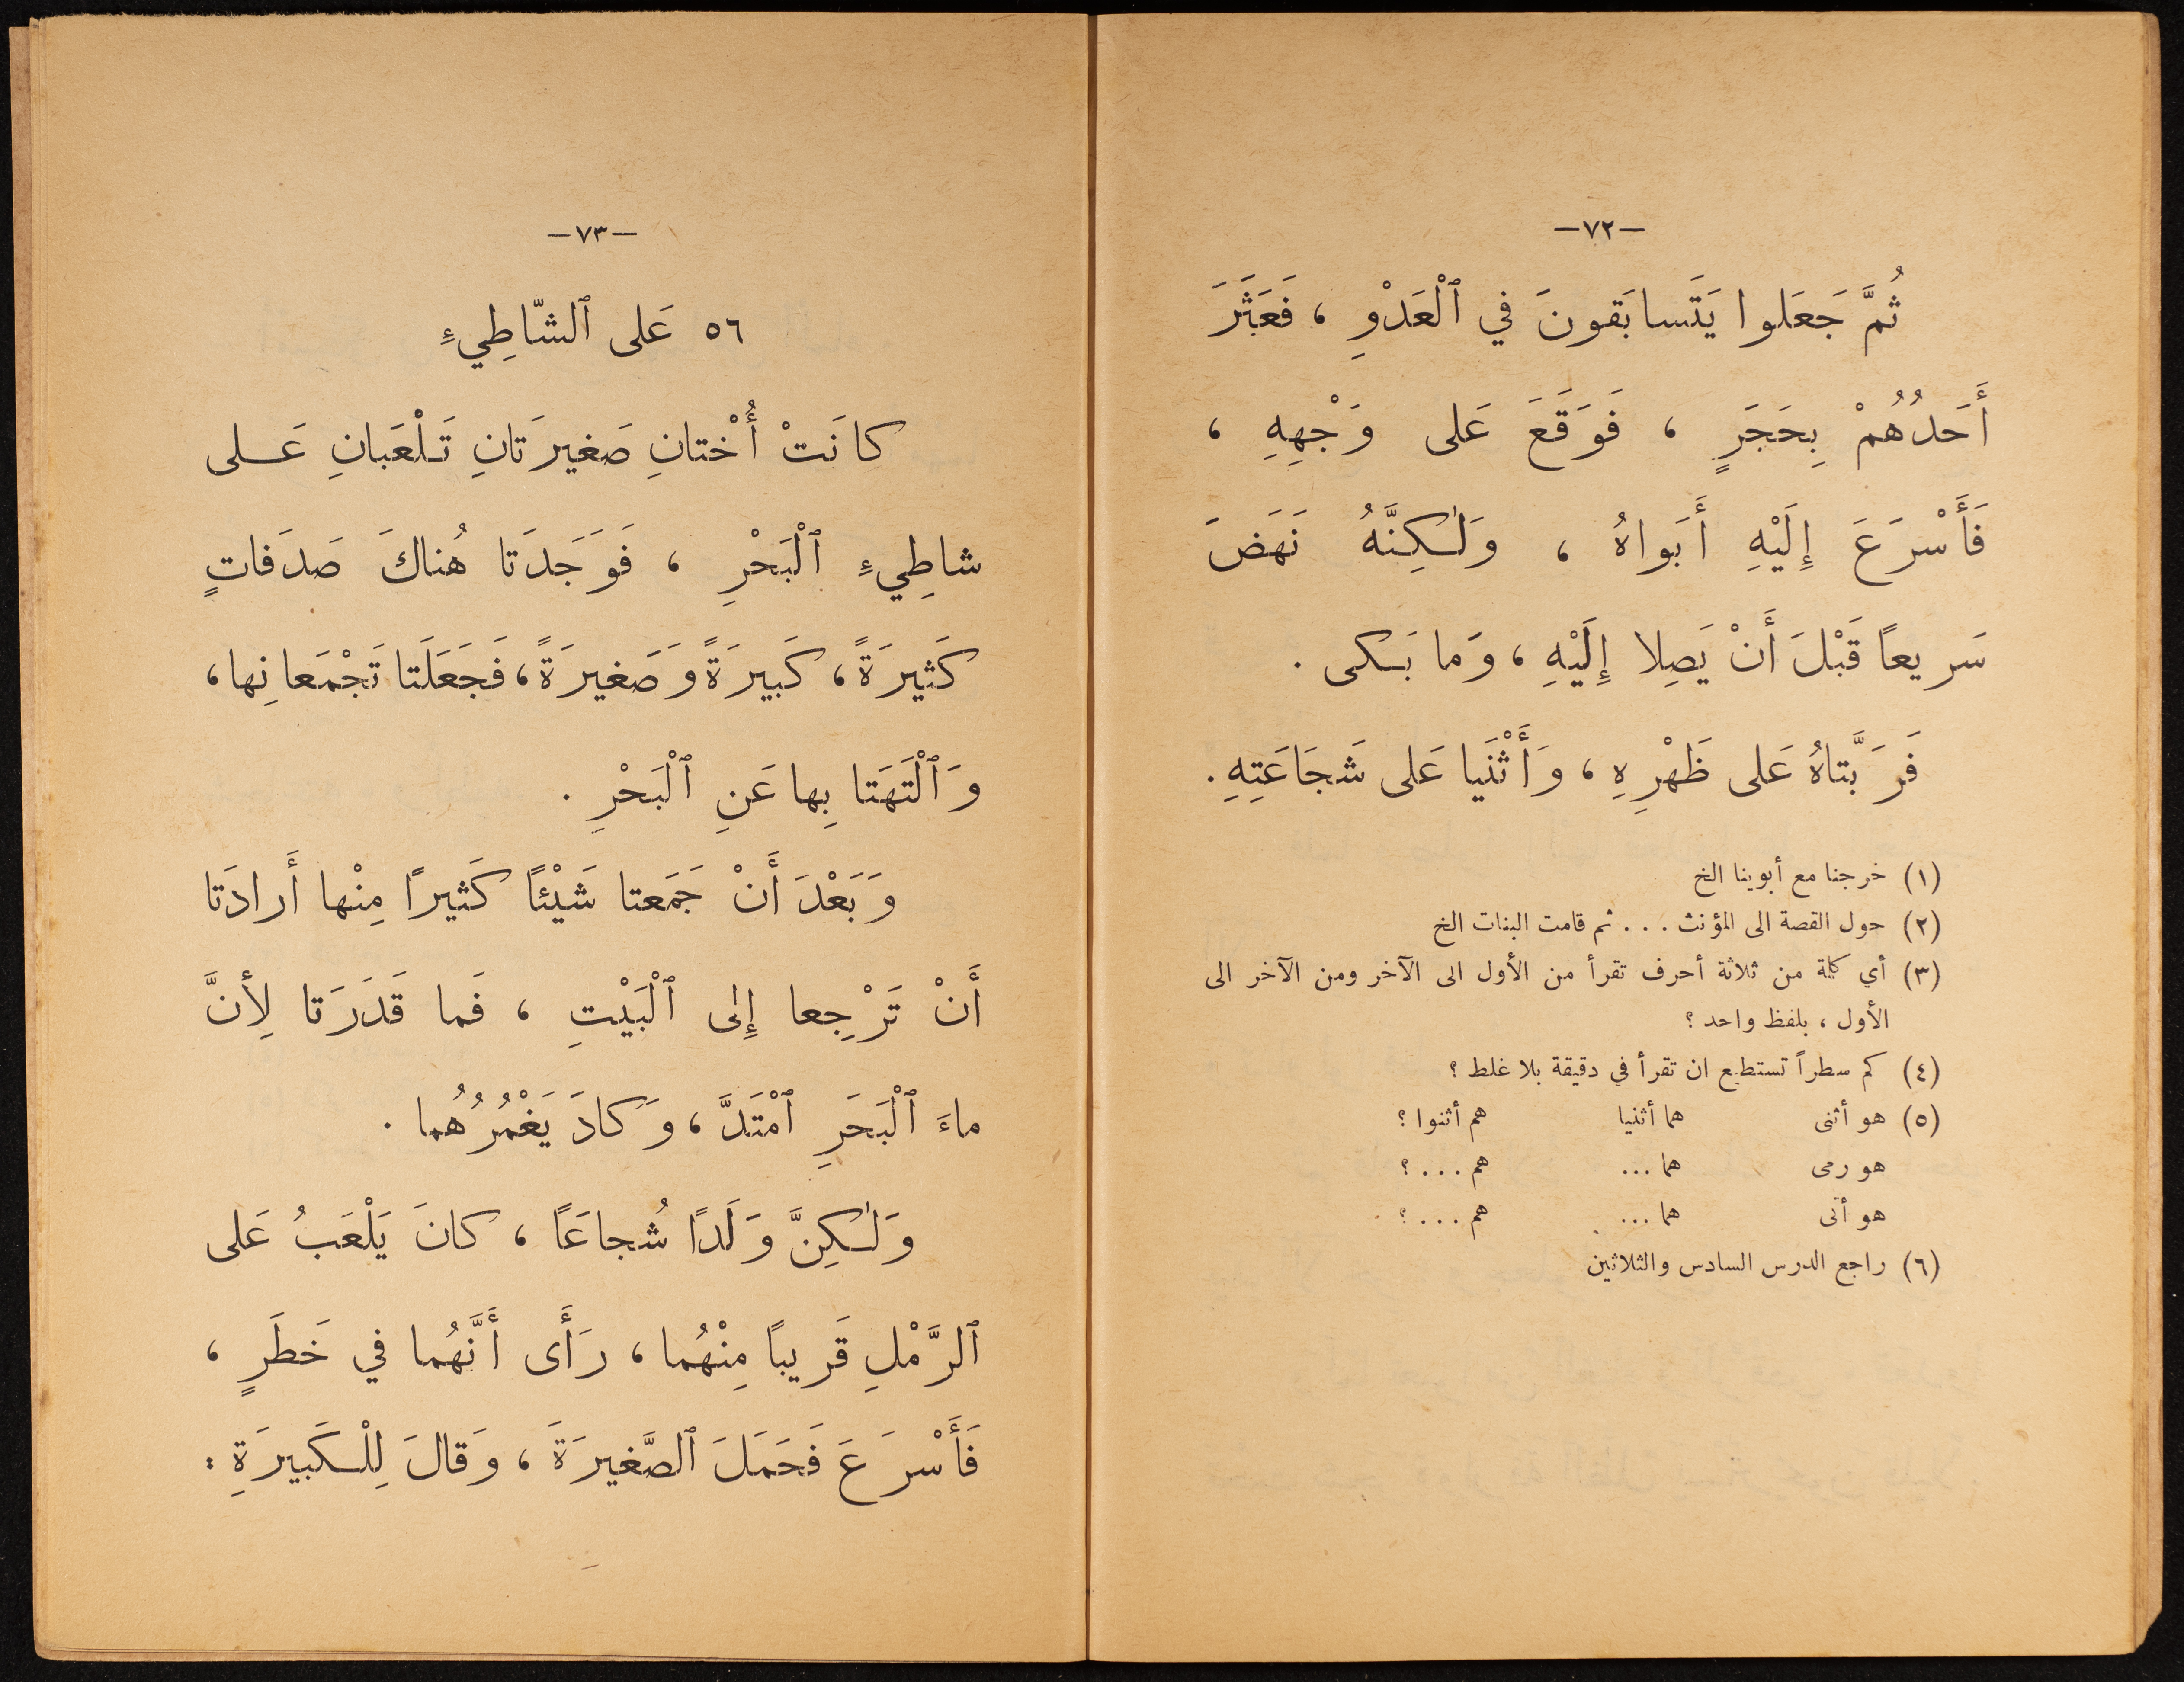 —٧٢—
ثُمَّ جَعَلوا يَتَسابَقونَ في ٱلْعَدْوِ ، فَعَثَرَ
أَحَدُهُمْ بِحَجَرٍ ، فَوَقَعَ عَلى وَجْهِهِ ،
فَأَسْرَعَ إِلَيْهِ أَبَواهُ ، وَلٰكِنَّهُ نَهَضَ
سَريعاً قَبْلَ أَنْ يَصِلا إِلَيْهِ ، وَما بَكى .
فَرَبَّتاهُ عَلى ظَهْرِهِ ، وَأَثْنَيا عَلى شَجَاعَتِهِ .
(١) خرجنا مع أبوينا الخ
(٢) حول القصة الى المؤنث . . . ثم قامت البنات الخ
(٣) أي كلمة من ثلاثة أحرف تقرأ من الأول الى الآخر ومن الآخر الى
الأول ، بلفظ واحد ؟
(٤) كم سطراً تستطيع ان تقرأ في دقيقة بلا غلط ؟
(٥) هو أثنى هما أثنيا هم أثنوا ؟
هو رمى هما ... هم . . . ؟
هو أتى هما ... هم . . . ؟
(٦) راجع الدرس السادس والثلاثين
—٧٣—
٥٦ عَلى ٱلشّاطِيءِ
كانَتْ أُخْتانِ صَغيرَتانِ تَلْعَبانِ عَلى
شاطِيءِ ٱلْبَحْرِ ، فَوَجَدَتا هُناكَ صَدَفاتٍ
كَثيرَةً ، كَبيرَةً وَصَغيرَةً ، فَجَعَلَتا تَجْمَعانِها ،
وَٱلْتَهَتا بِها عَنِ ٱلْبَحْرِ .
وَبَعْدَ أَنْ جَمَعتا شَيْئاً كَثيراً مِنْها أَرادَتا
أَنْ تَرْجِعا إِلى ٱلْبَيْتِ ، فَما قَدَرَتا لِأنَّ
ماءَ ٱلْبَحَرِ ٱمْتَدَّ ، وَكادَ يَغْمُرُهُما .
وَلٰكِنَّ وَلَداً شُجاعَاً ، كانَ يَلْعَبُ عَلى
ٱلرَّمْلِ قَريباً مِنْهُما ، رَأَى أَنَّهُما في خَطَرٍ ،
فَأَسْرَعَ فَحَمَلَ ٱلصَّغيرَةَ ، وَقالَ لِلْكَبيرَةِ :